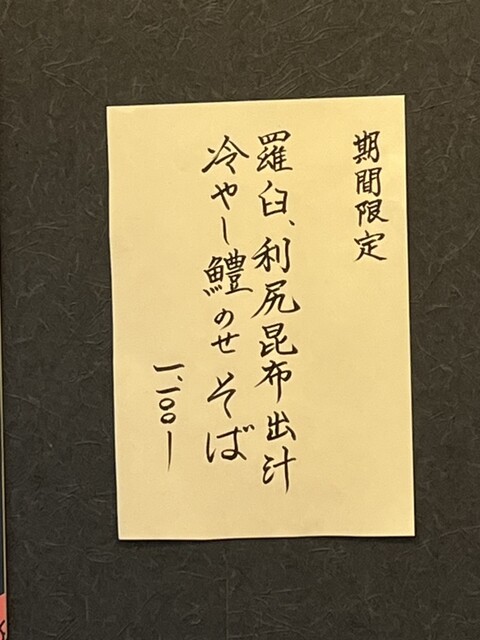 期間限定
羅臼、利尻昆布出汁
冷やし鱧のせそば
一、一〇〇ー